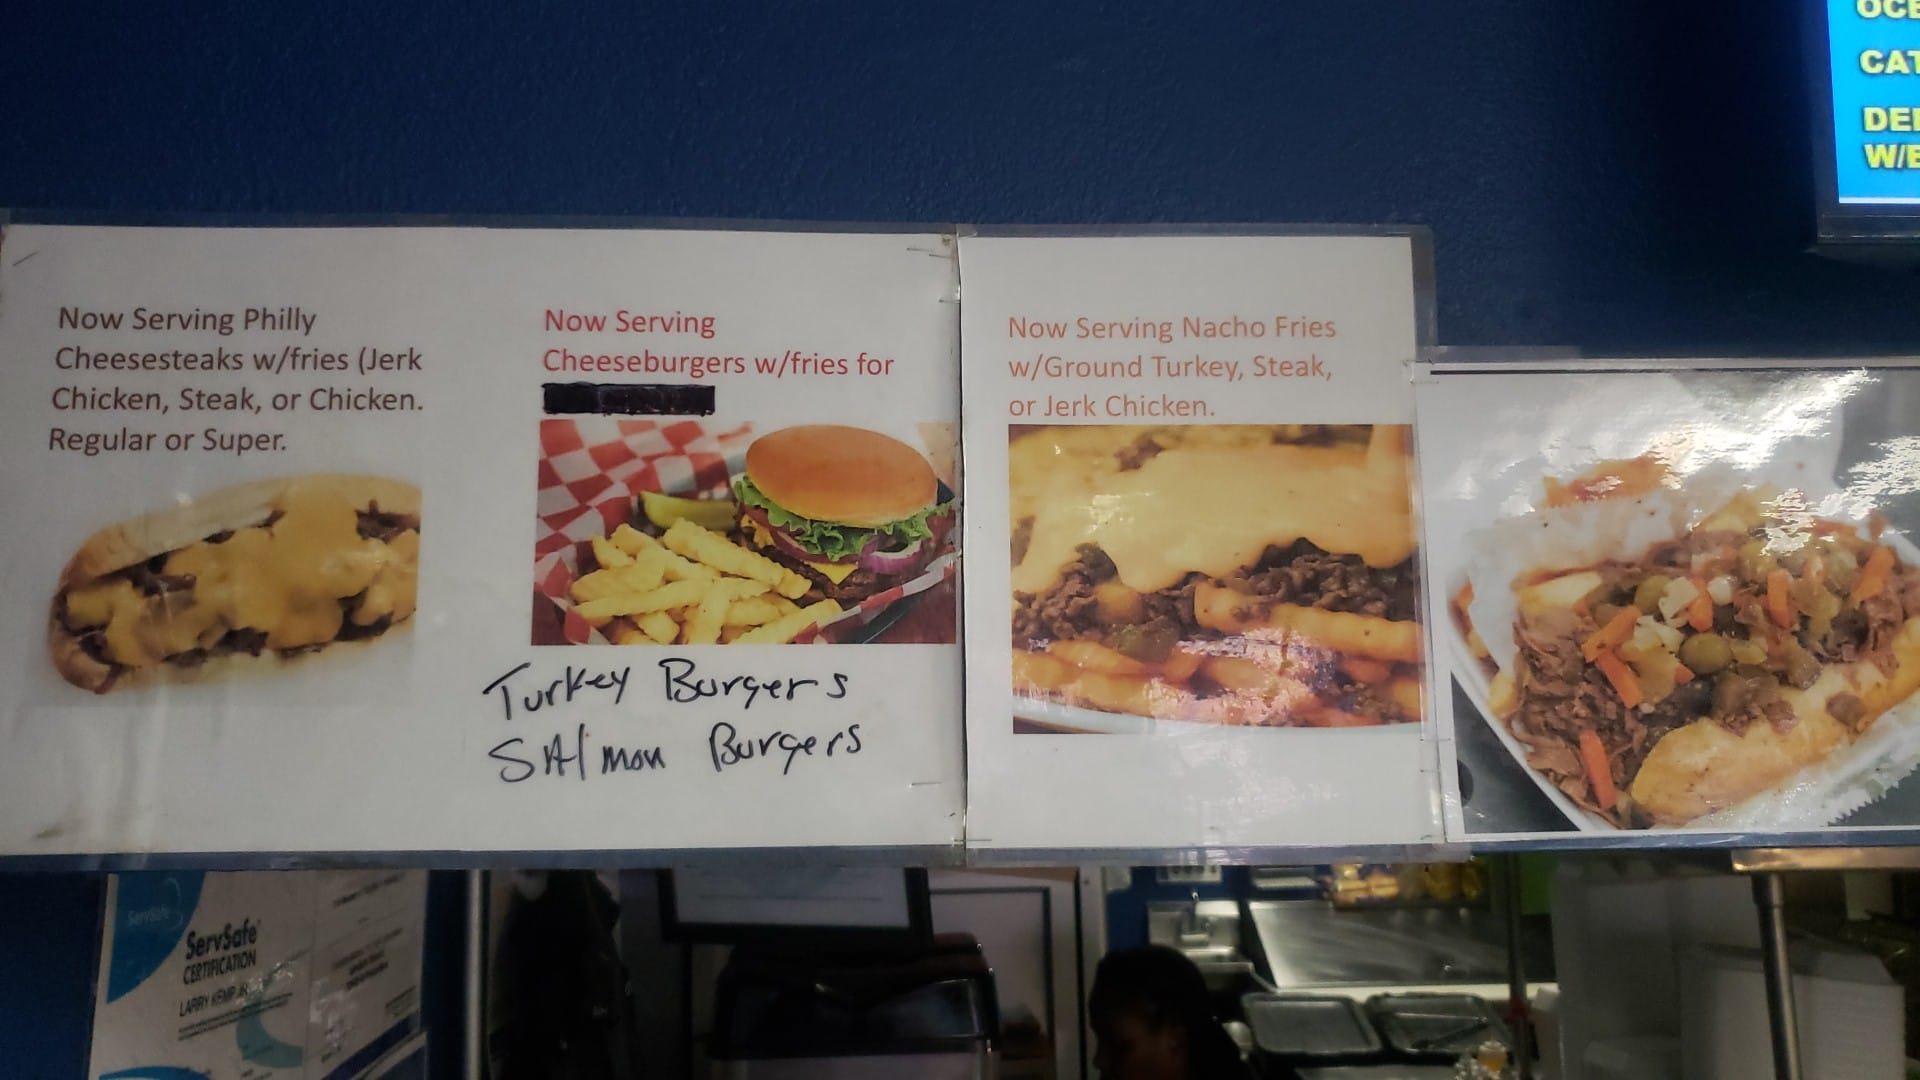 OCE
CAT
DEL
W/E
Now Serving Philly
Cheesesteaks w/fries (Jerk
Chicken, Steak, or Chicken.
Regular or Super.
Now Serving
Cheeseburgers w/fries for
Turkey Burgers
SAlmon Burgers
Now Serving Nacho Fries
w/Ground Turkey, Steak,
or Jerk Chicken.
ServSafe
ServSafe
CERTIFICATION
LARRY KEMP JR